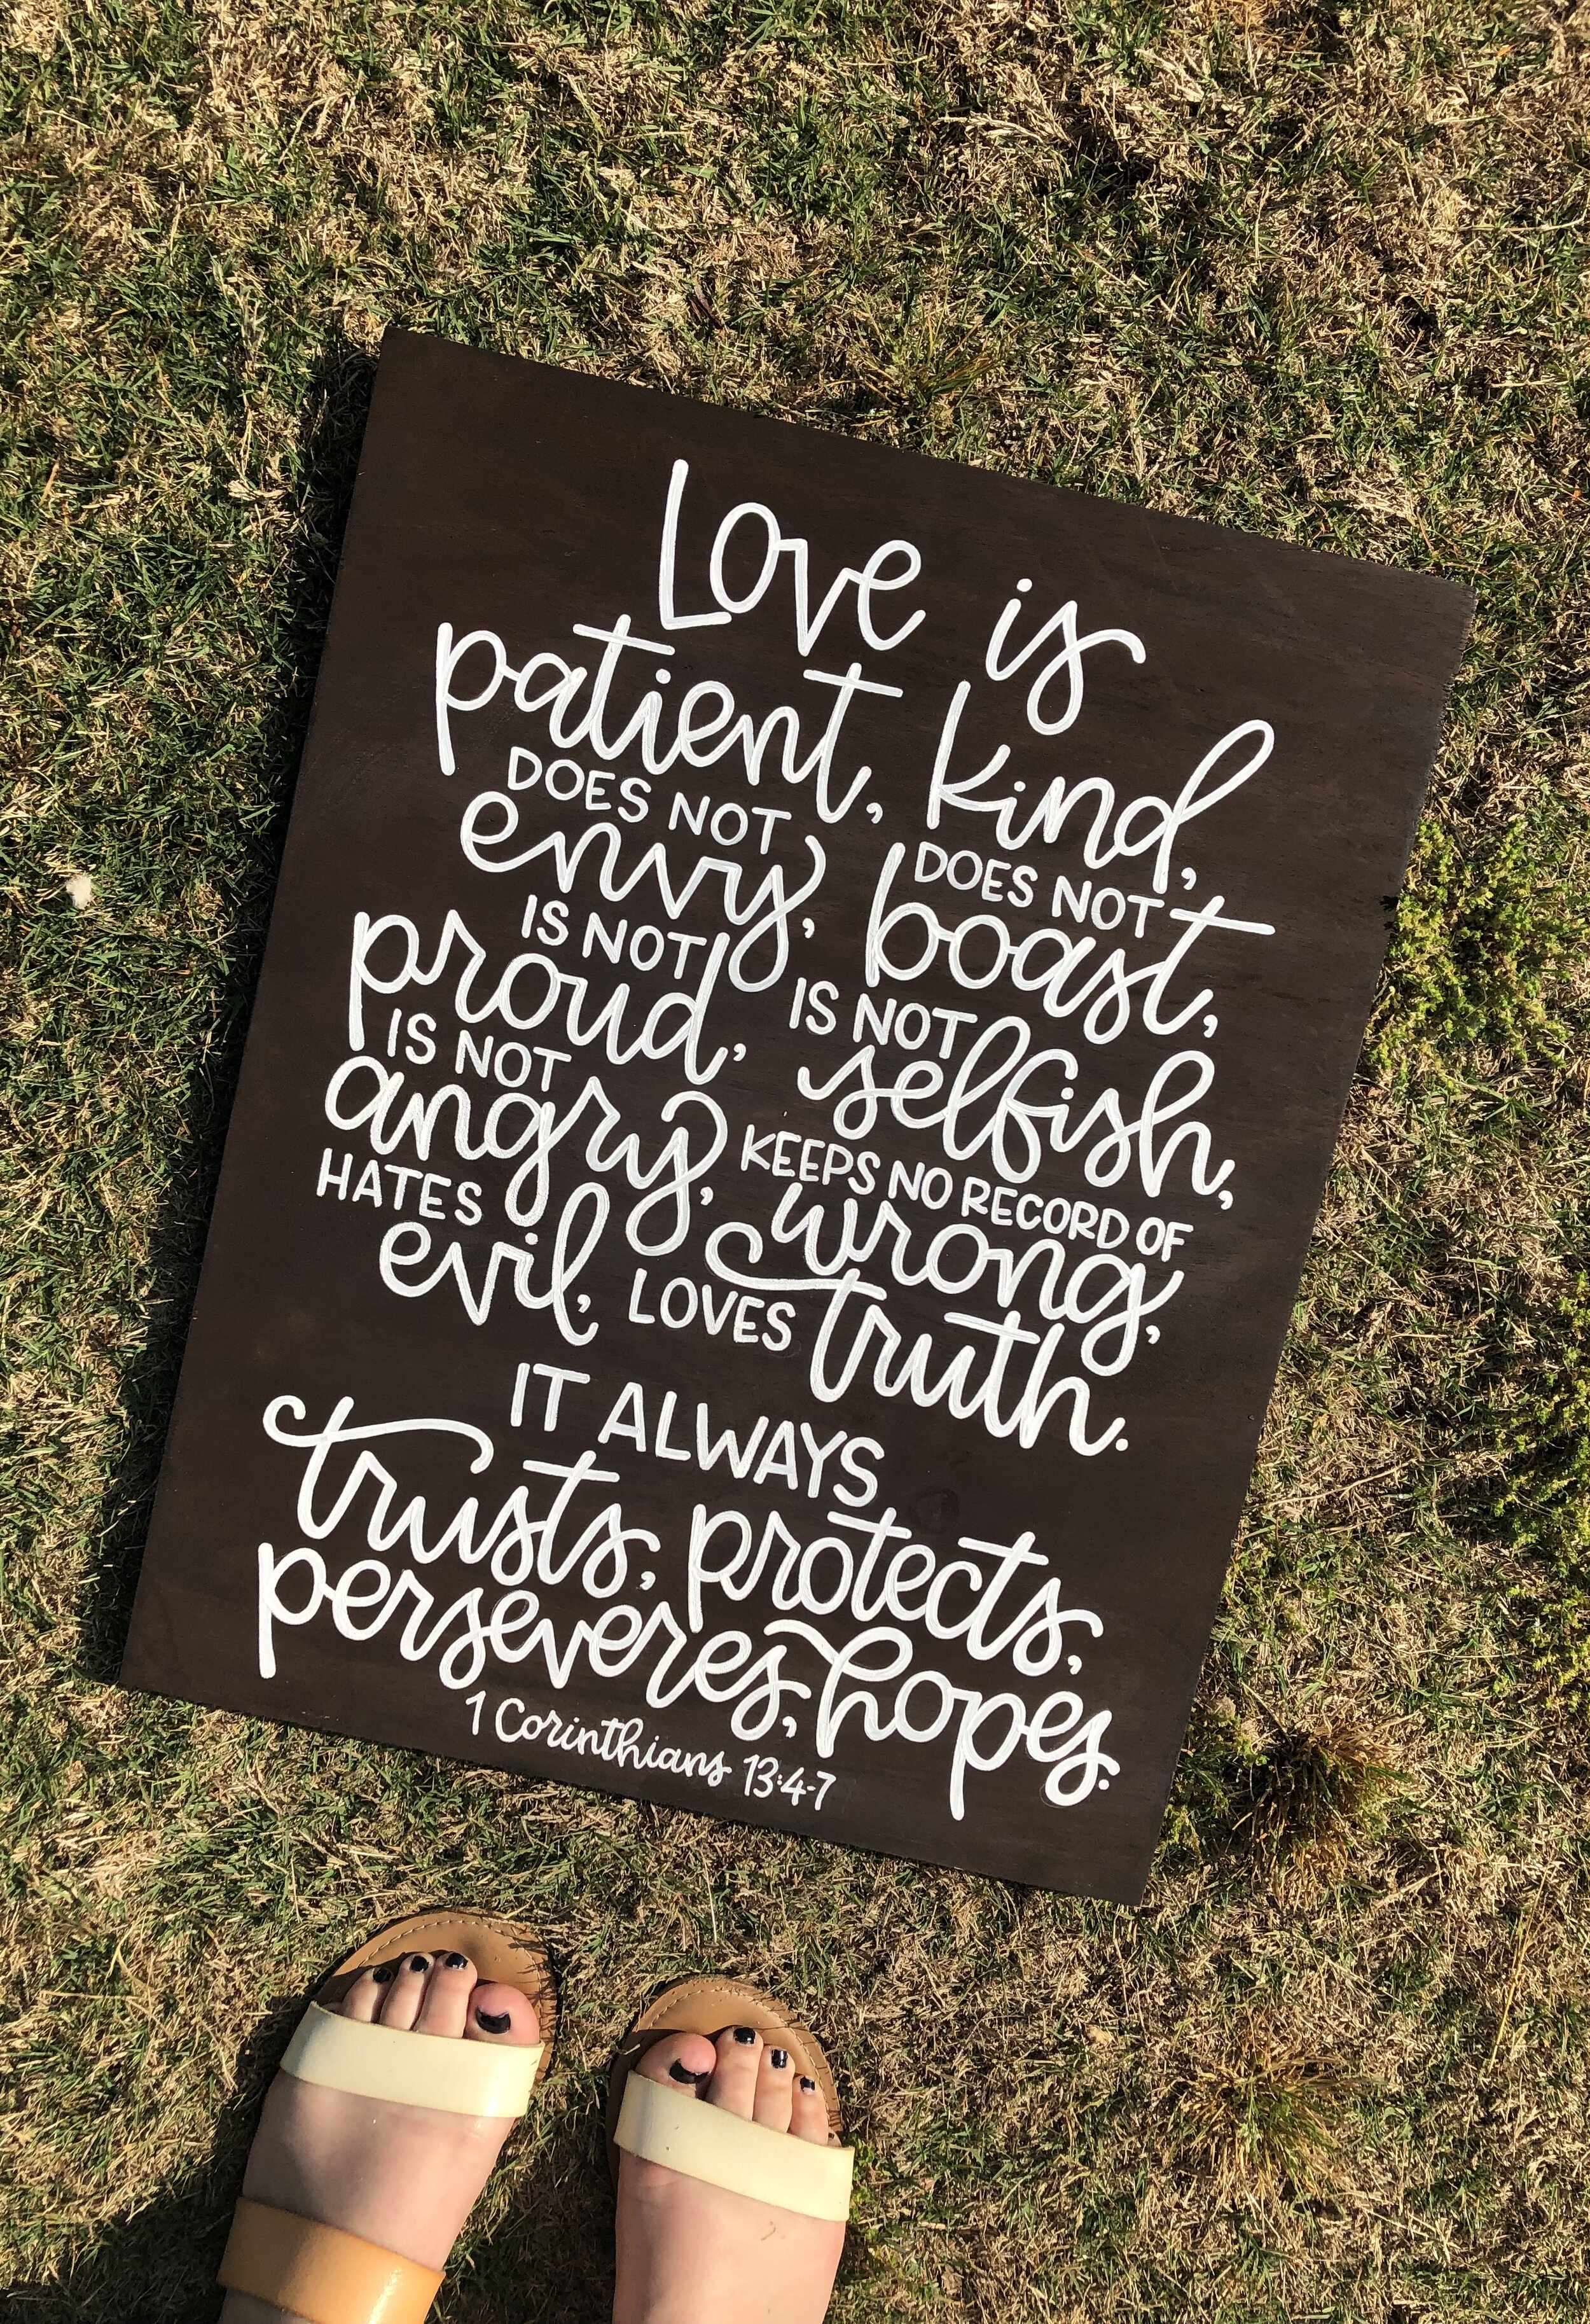 Love is
patient, kind,
DOES NOT envy, DOES NOT boast,
IS NOT proud, IS NOT selfish,
IS NOT angry, KEEPS NO RECORD OF wrong,
HATES evil, LOVES truth.
IT ALWAYS
trusts, protects,
perseveres, hopes.
1 Corinthians 13:4-7